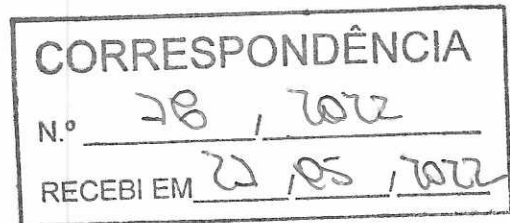 CORRESPONDÊNCIA
N.º 28 / 2022
RECEBI EM / 05 / 2022